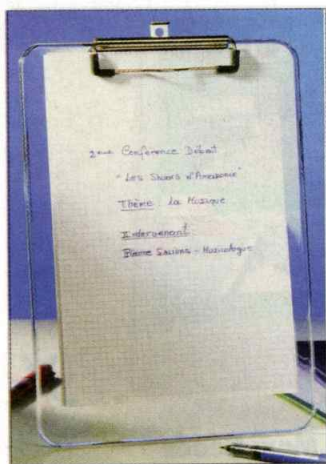 2ème Conférence Débat
"Les Soirées d'
Thème La Musique
Intervenant
Pierre - Musicologue